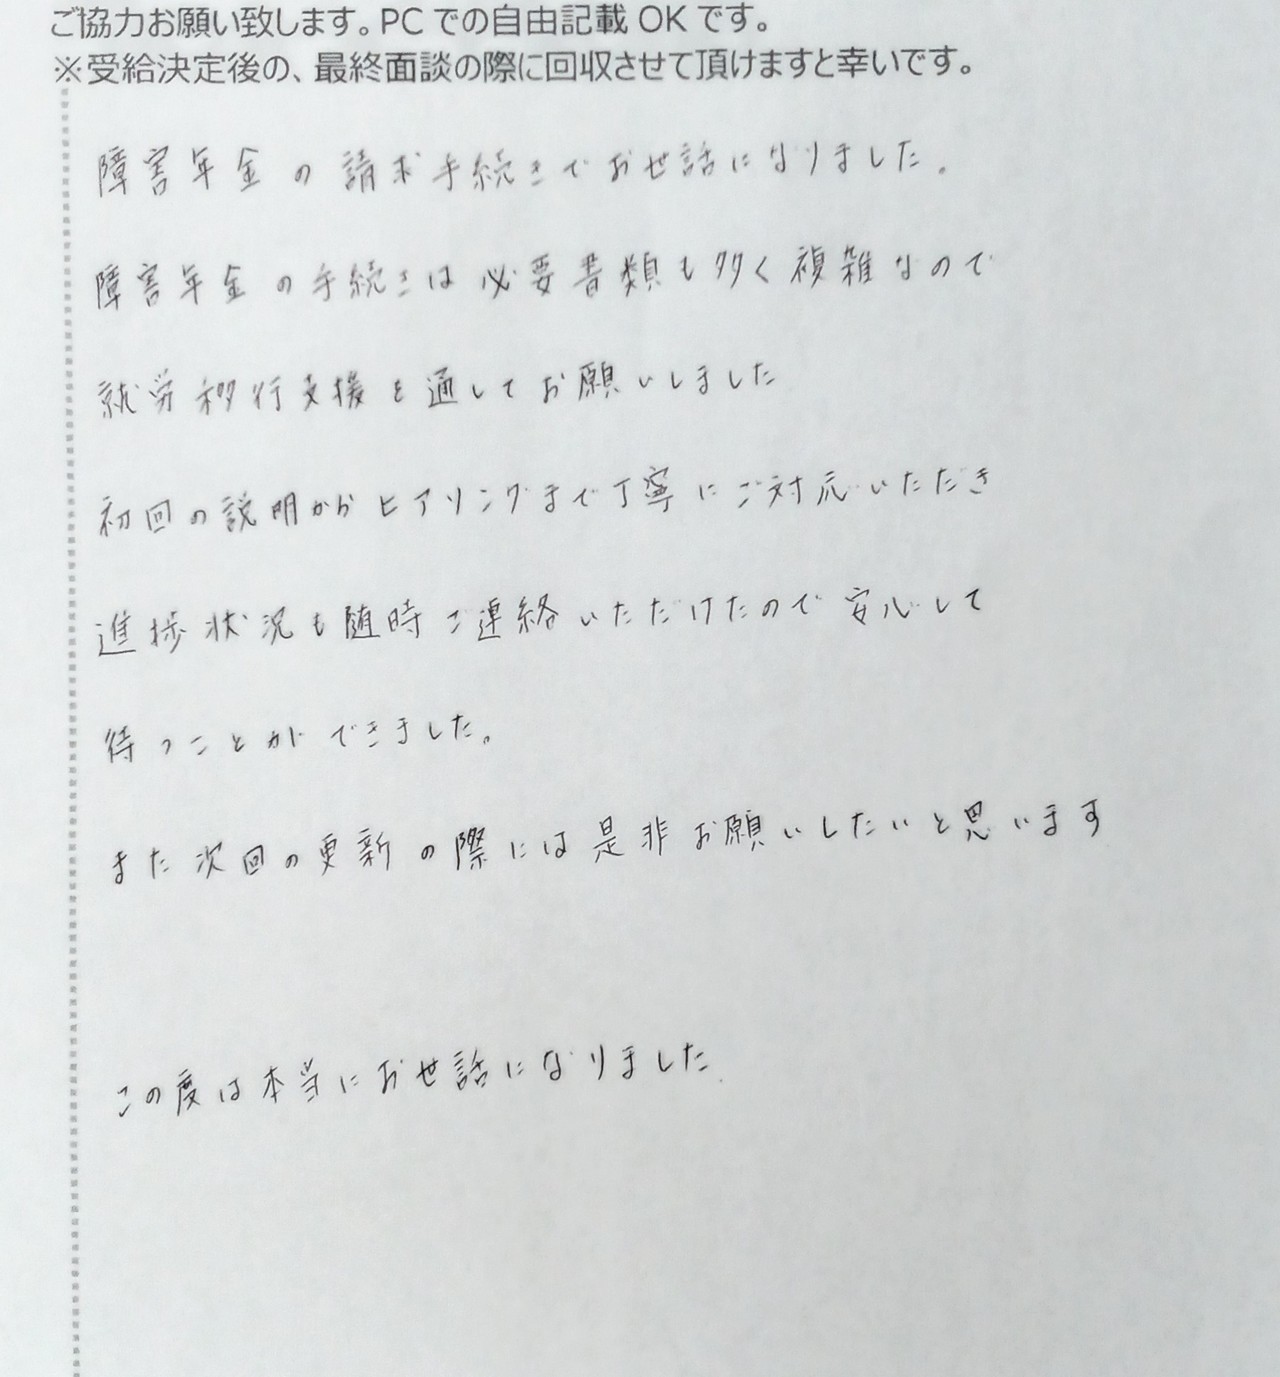 ご協力お願い致します。PCでの自由記載OKです。
※受給決定後の、最終面談の際に回収させて頂けますと幸いです。
障害年金の請求手続きでお世話になりました。
障害年金の手続きは必要書類も多く複雑なので
就労移行支援を通してお願いしました
初回の説明からヒアリングまで丁寧にご対応いただき
進捗状況も随時ご連絡いただけたので安心して
待つことができました。
また次回の更新の際には是非お願いしたいと思います
この度は本当にお世話になりました.